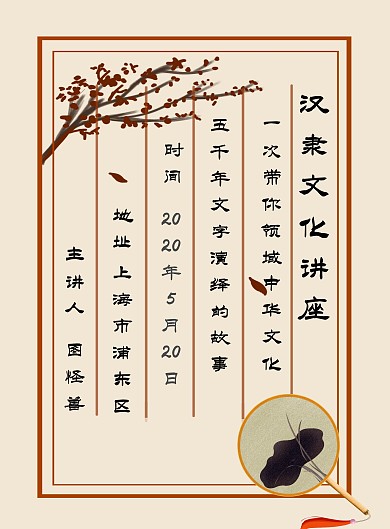 汉隶文化讲座
一次带你领域中华文化
五千年文字演绎的故事
时间 2020年5月20日
地址上海市浦东区
主讲人 图怪兽